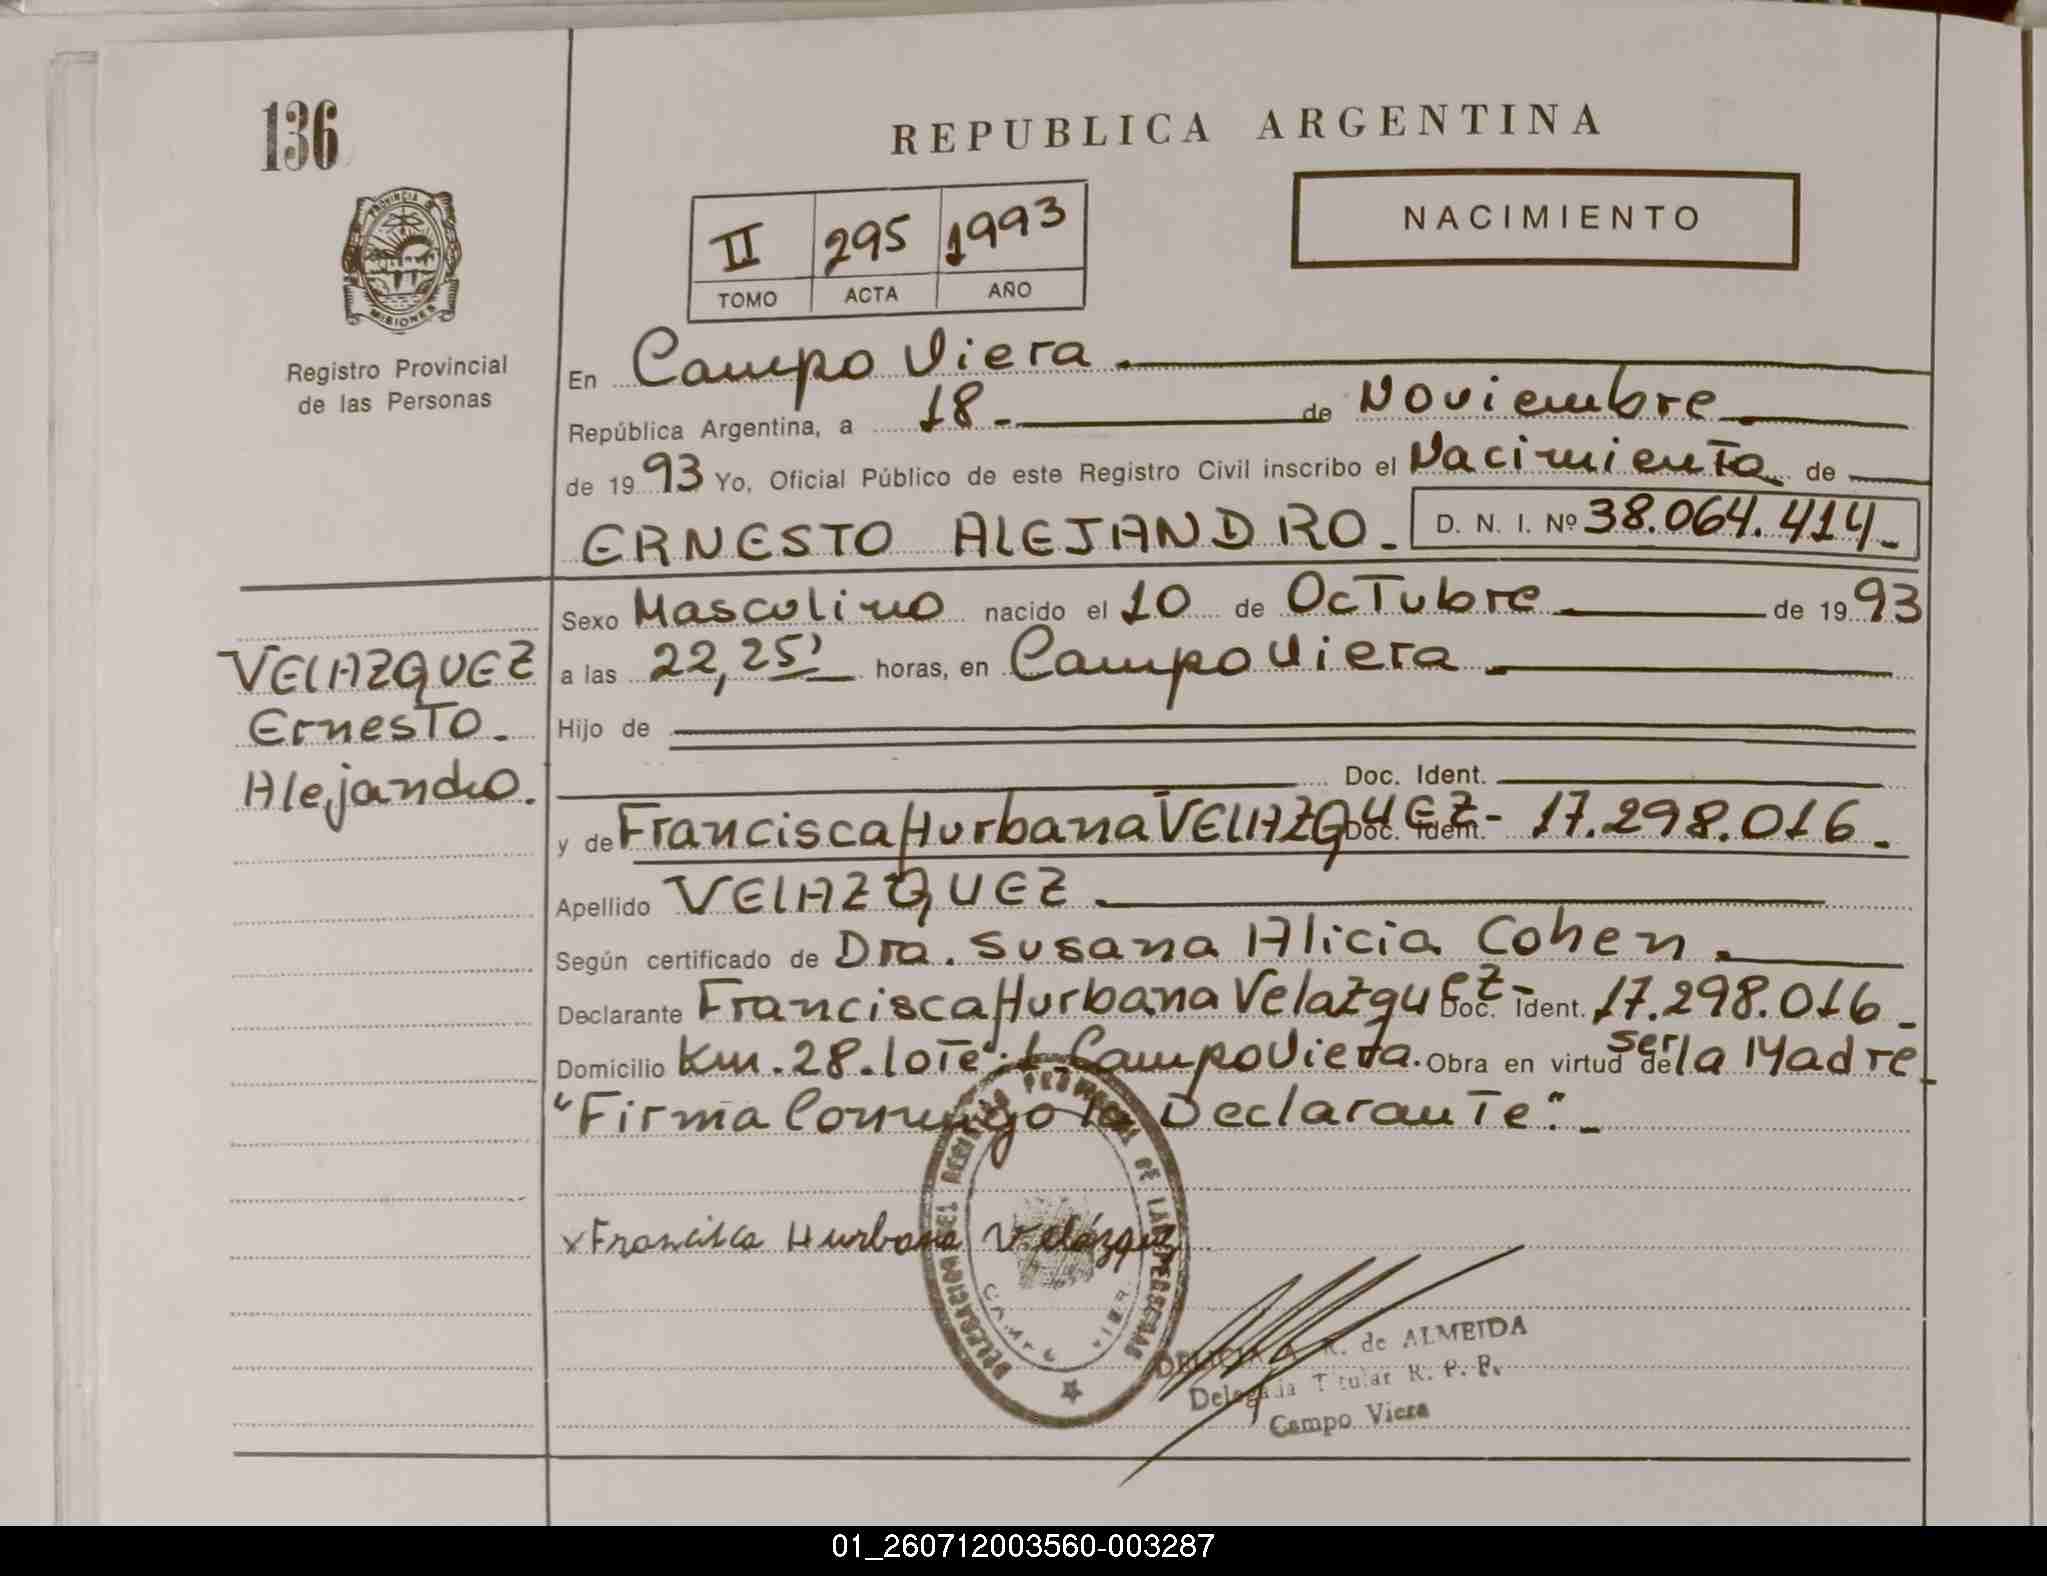 136
REPUBLICA ARGENTINA
NACIMIENTO
II 295 1993
TOMO ACTA AÑO
PROVINCIA DE
MISIONES
Registro Provincial
de las Personas
En Campo Viera
República Argentina, a 18 de Noviembre
de 1993 Yo, Oficial Público de este Registro Civil inscribo el Nacimiento de
ERNESTO ALEJANDRO. D. N. I. Nº 38.064.414
Sexo Masculino nacido el 10 de Octubre de 1993
VELAZQUEZ
Ernesto.
Alejandro.
a las 22,25' horas, en Campo Viera
Hijo de
Doc. Ident.
y de Francisca Hurbana VELAZQUEZ - Doc. Ident. 17.298.016
Apellido VELAZQUEZ
Según certificado de Dra. Susana Alicia Cohen
Declarante Francisca Hurbana Velazquez - Doc. Ident. 17.298.016
Domicilio Km. 28. lote: 1 Campo Viera. Obra en virtud de ser la Madre
"Firma Conmigo la Declarante".
x Francisca Hurbana Velázquez
DELEGACION DEL REGISTRO PROVINCIAL DE LAS PERSONAS
CAMPO VIERA
DELICIA A. R. de ALMEIDA
Delegada Titular R. P. P.
Campo Viera
01_260712003560-003287